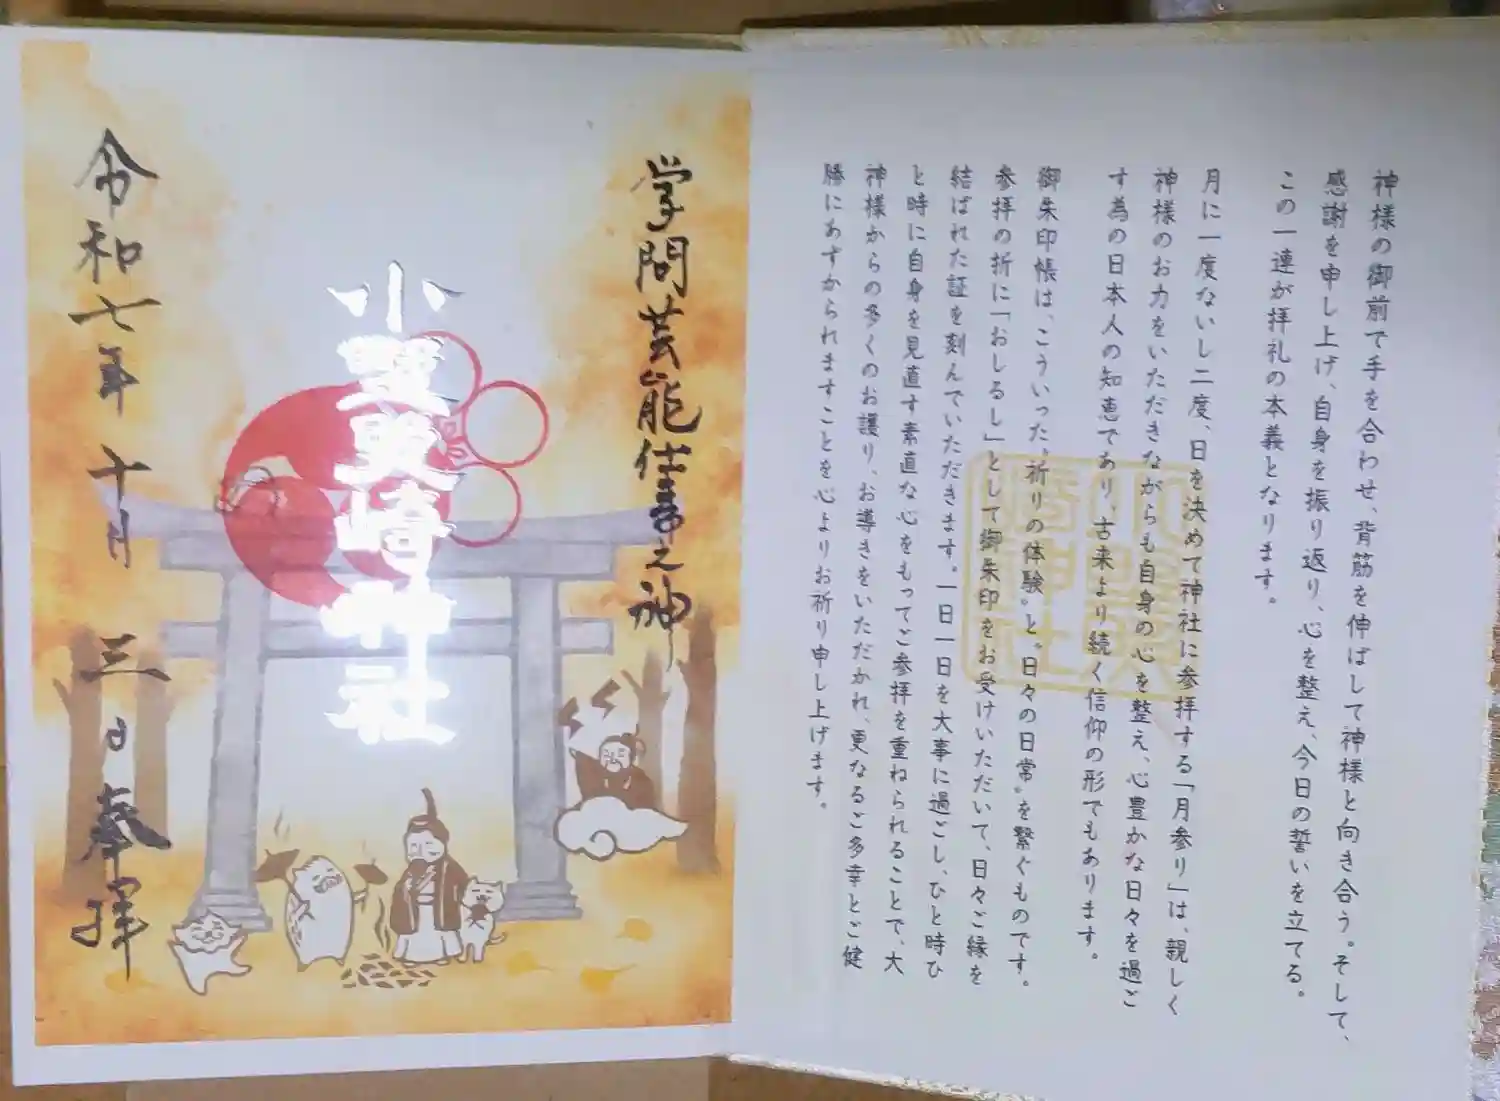 神様の御前で手を合わせ、背筋を伸ばして神様と向き合う。そして、
感謝を申し上げ、自身を振り返り、心を整え、今日の誓いを立てる。
この一連が拝礼の本義となります。
月に一度ないし二度、日を決めて神社に参拝する「月参り」は、親しく
神様のお力をいただきながらも自身の心を整え、心豊かな日々を過ご
す為の日本人の知恵であり、古来より続く信仰の形でもあります。
御朱印帳は、こういった〝祈りの体験〟と〝日々の日常〟を繋ぐものです。
参拝の折に「おしるし」として御朱印をお受けいただいて、日々ご縁を
結ばれた証を刻んでいただきます。一日一日を大事に過ごし、ひと時ひ
と時に自身を見直す素直な心をもってご参拝を重ねられることで、大
神様からの多くのお護り、お導きをいただかれ、更なるご多幸とご健
勝にあずかられますことを心よりお祈り申し上げます。
学問芸能仕事之神
小野崎神社
令和七年十月三日奉拝